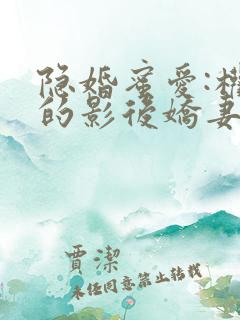 隐婚蜜爱:权
的影後嬌妻
賈潔
未经同意禁止转载